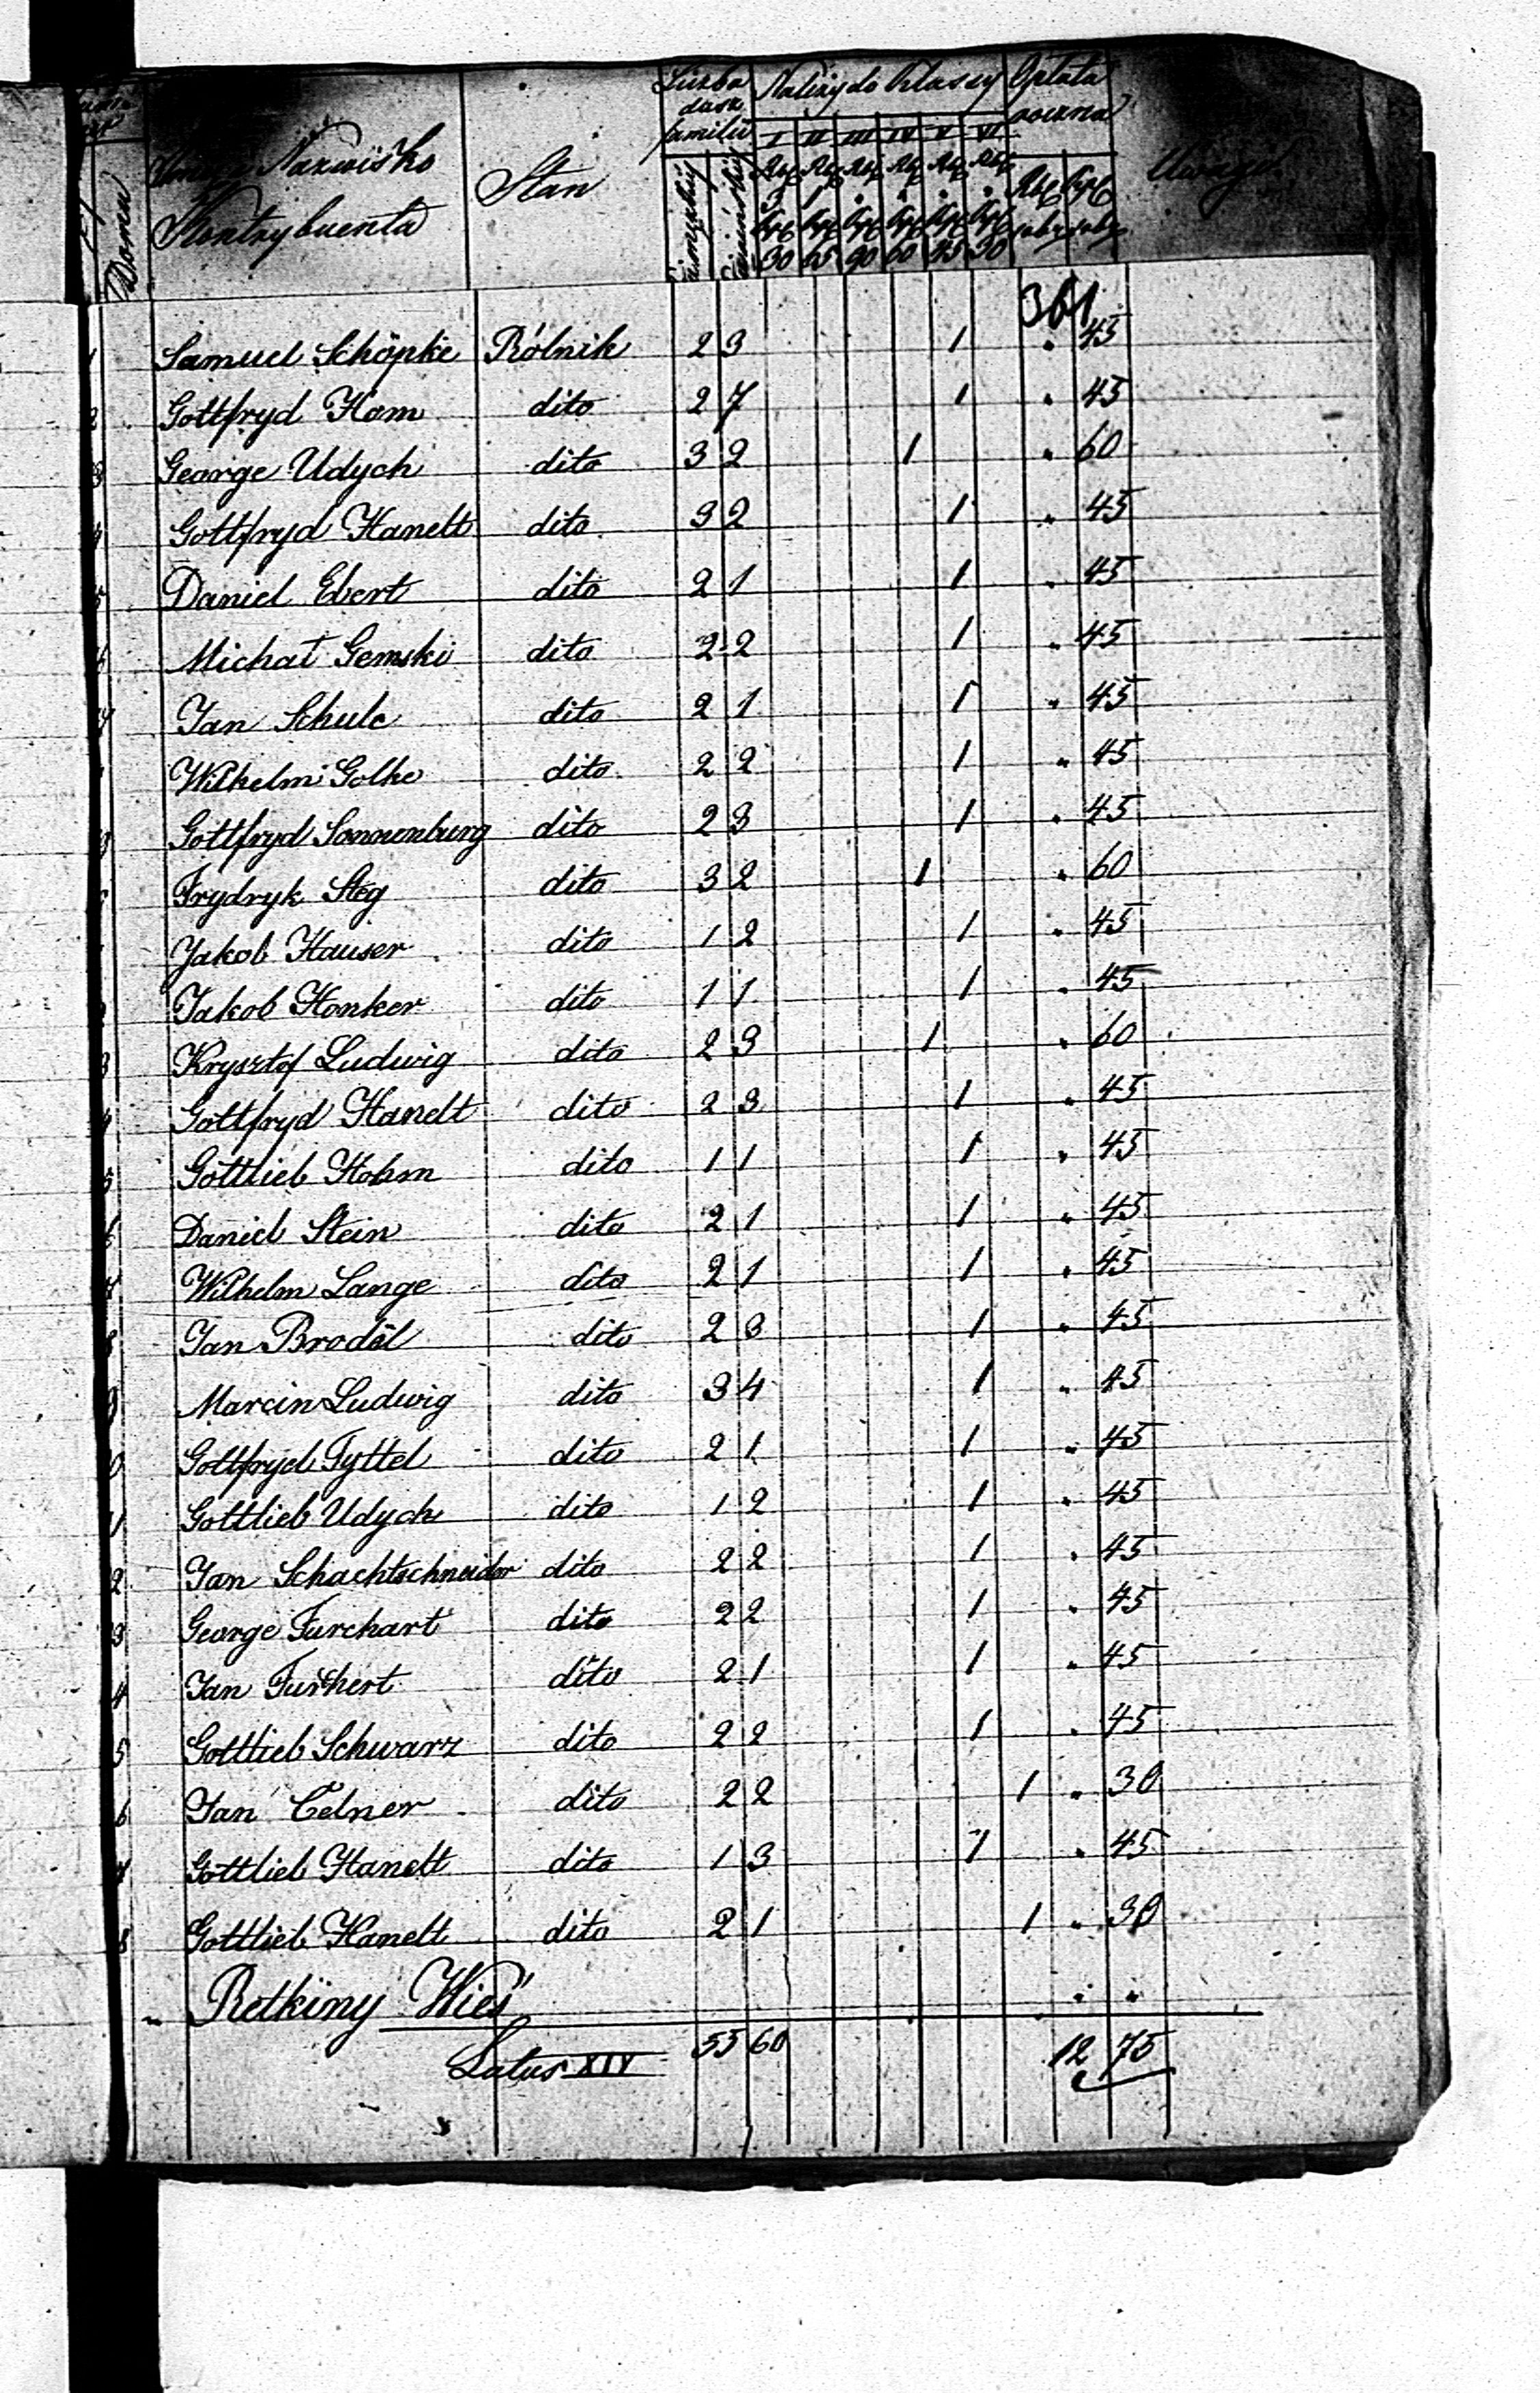 Imię i Nazwisko Kontrybuenta Stan Liczba dusz familii Należy do Klassy Opłata roczna Uwagi
Domu męzkiej żeńskiej I II III IV V VI
30 65 90 60 45 30
361
1 Samuel Schöpke Rólnik 2 3 1 " 45
2 Gottfryd Ham dito 2 7 1 " 45
3 George Udych dito 3 2 1 " 60
4 Gottfryd Hanelt dito 3 2 1 " 45
5 Daniel Ebert dito 2 1 1 " 45
6 Michał Gemski dito 2 2 1 " 45
7 Jan Schulc dito 2 1 1 " 45
Wilhelm Golke dito 2 2 1 " 45
Gottfryd Sonnenburg dito 2 3 1 " 45
Frydryk Steg dito 3 2 1 " 60
Jakob Hauser dito 1 2 1 " 45
Jakob Honker dito 1 1 1 " 45
3 Krysztof Ludwig dito 2 3 1 " 60
4 Gottfryd Hanelt dito 2 3 1 " 45
5 Gottlieb Hohm dito 1 1 1 " 45
6 Daniel Stein dito 2 1 1 " 45
7 Wilhelm Lange dito 2 1 1 " 45
8 Jan Brodöl dito 2 3 1 " 45
9 Marcin Ludwig dito 3 4 1 " 45
0 Gottfryd Tyttel dito 2 1 1 " 45
1 Gottlieb Udych dito 1 2 1 " 45
2 Jan Schachtschneider dito 2 2 1 " 45
3 George Furchart dito 2 2 1 " 45
4 Jan Furchert dito 2 1 1 " 45
5 Gottlieb Schwarz dito 2 2 1 " 45
6 Jan Celner dito 2 2 1 " 30
7 Gottlieb Hanelt dito 1 3 1 " 45
8 Gottlieb Hanelt dito 2 1 1 " 30
Retkiny Wieś " "
Latus XIV 55 60 12 75